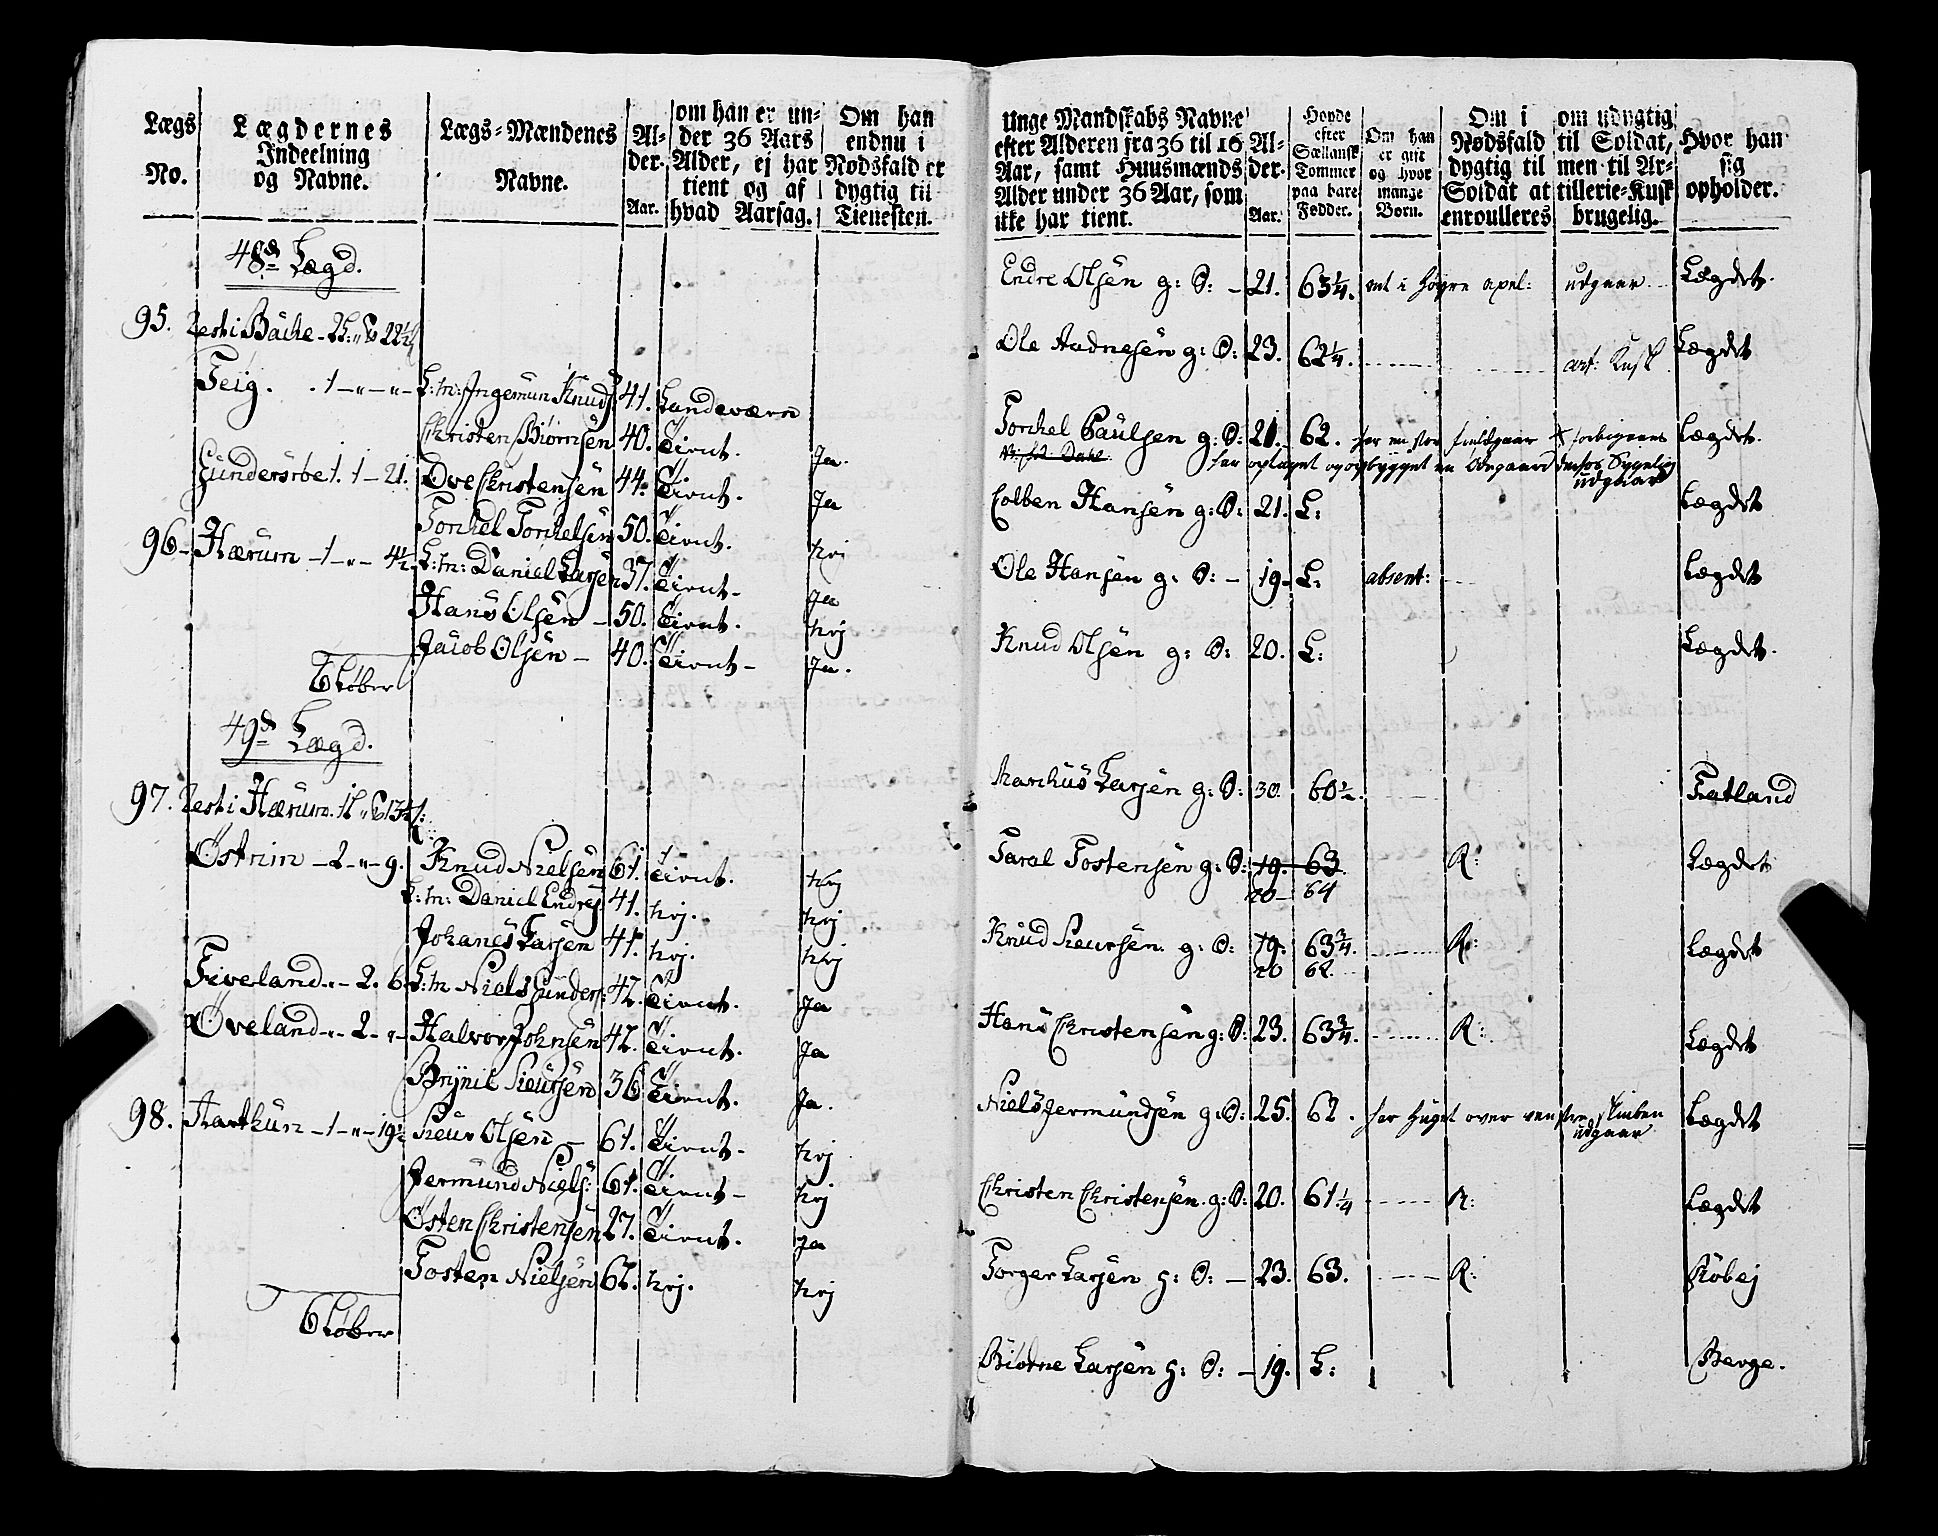 Lægs No.
Lægdernes Indeelning og Navne.
Lægs-Mændenes Navne.
Alder. Aar.
om han er under 36 Aars Alder, ej har tient og af hvad Aarsag.
Om han endnu i Nødsfald er dygtig til Tienesten.
48d Lægd.
95. Rest i
Teig. . 1 – " – " – L: m: Ingemun Knuds 41. Landeværn
Christen Biørnsen 40. Tient. Ja.
1 – 21. Ove Christensen 44. Tient. Ja
Torchel Torchelsen 50. Tient. Nej
96 – Hærum – 1 – " – 4½ L: m: Daniel Larsen 37. Tient – Ja
Hans Olsen – 50. Tient. Nej
Jacob Olsen – 40. Tient – Ja.
6 Køber
49d Lægd.
97. Rest i Hærum.
Østrim – 2 – " – 9. Knud Nielsen 61. Tient. Nej
L: m: Daniel Endres 41. Nej. Nej
Johanes Larsen 41. Nej. Nej
Tveland " – 2. 6. L: m Niels Gunders: 42. Tient. Ja
Øveland – " – 2. " – Halvor Johnsen 42. Tient. Ja
Brynil Sieursen 36 Tient. Ja.
98. Aarthun – 1 – " – 19½ Sieur Olsen – 61. Tient – Nej
Jermund Niels: 61. Tient – Nej
Østen Christensen 27. Tient. Ja
Tosten Nielsen 62. Nej. Nej
6 Køber
Unge Mandskabs Navne efter Alderen fra 36 til 16 Aar, samt Huusmænds Alder under 36 Aar, som ikke har tient.
Alder. Aar.
Høyde efter Sællansk Tommer paa bare Fødder.
Om han er gift og hvor mange Born.
Om i Nødsfald dygtig til Soldat at enroulleres
om udygtig til Soldat, men til Artillerie-Kusk brugelig.
Hvor han sig opholder.
Endre Olsen g: S: – 21. 63¼. udgaar Lægdet.
Ole Aadnesen g: S: 23. 62¼. art: Kusk Lægdet
Torchel Paulsen g: S: 21. 62. Lægdet.
udgaar
Colben Hansen g: S: 21. L: Lægdet
Ole Hansen g: S: – 19 – L: absent: Lægdet
Knud Olsen g: S: 20. L: Lægdet.
Marchus Larsen g: S: 30. 60½. Fatland
Taral Tostensen g: S: 19. 63. R: Lægdet
20 – 64
Knud Sieursen. g: S: 19. 63¾ R: Lægdet
20 62.
Hans Christensen g: S: 23. 63¾. R: Lægdet
Niels Jermundsen g: S: 25. 62. har hugget over venstre Lægdet
udgaar
Christen Christensen. g: S: 20. 61¼ R: Lægdet
Torger Larsen h: S: – 23. 63. R:
Biødne Larsen h: S: – 19. L: Berge.